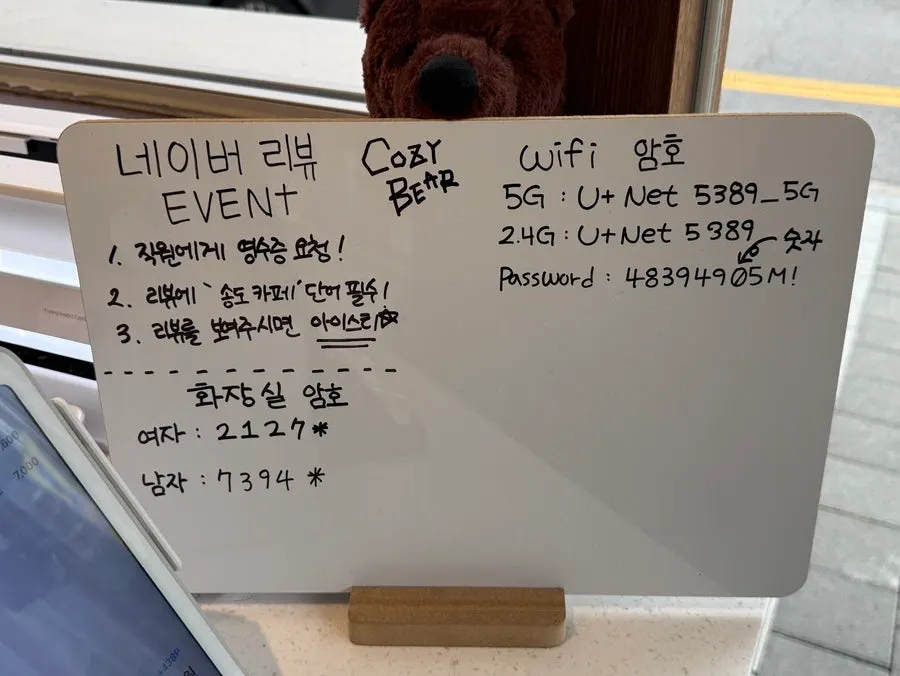 네이버 리뷰
EVENT
1. 직원에게 영수증 요청!
2. 리뷰에 `송도 카페' 단어 필수!
3. 리뷰를 보여주시면 아이스티
화장실 암호
여자 : 2127*
남자 : 7394 *
COZY
BEAR
wifi 암호
5G : U+ Net 5389_5G
2.4G : U+Net 5389
숫자
Password : 48394905M!
7,000